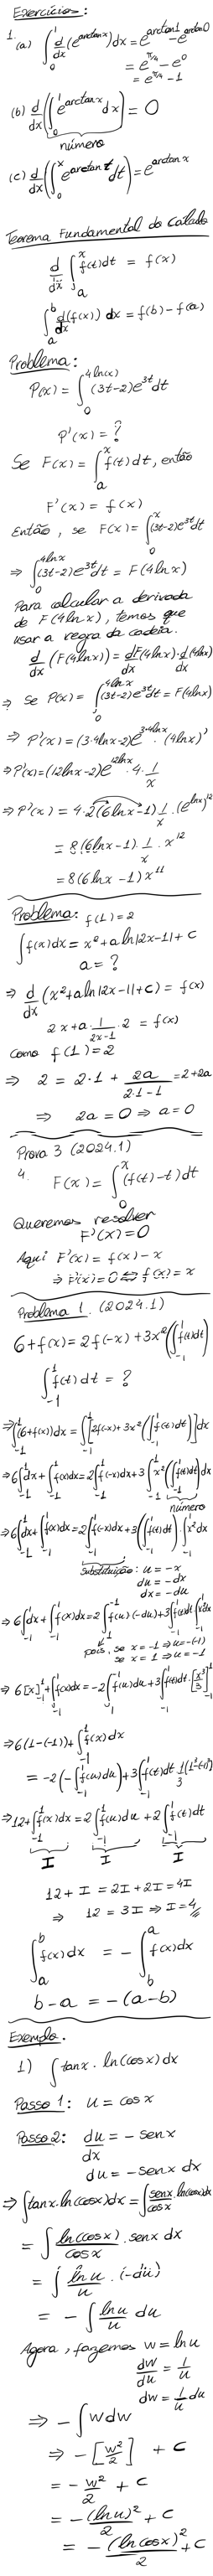 Exercícios:
1. (a) ∫₀¹ d/dx (e^{arctan x}) dx = e^{arctan 1} - e^{arctan 0}
= e^{π/4} - e^0
= e^{π/4} - 1
(b) d/dx (∫₀¹ e^{arctan x} dx) = 0
número
(c) d/dx (∫₀ˣ e^{arctan t} dt) = e^{arctan x}
Teorema Fundamental do Cálculo
d/dx ∫ₐˣ f(t)dt = f(x)
∫ₐᵇ d/dx (f(x)) dx = f(b) - f(a)
Problema:
P(x) = ∫₀^{4ln(x)} (3t-2)e^{3t} dt
P'(x) = ?
Se F(x) = ∫ₐˣ f(t)dt, então
F'(x) = f(x)
Então, se F(x) = ∫₀ˣ (3t-2)e^{3t} dt
⇒ ∫₀^{4lnx} (3t-2)e^{3t} dt = F(4lnx)
Para calcular a derivada
de F(4lnx), temos que
usar a regra da cadeia.
d/dx (F(4lnx)) = dF/dx (4lnx) · d/dx (4lnx)
⇒ Se P(x) = ∫₀^{4lnx} (3t-2)e^{3t} dt = F(4lnx)
⇒ P'(x) = (3·4lnx-2)e^{3·4lnx} · (4lnx)'
⇒ P'(x) = (12lnx-2)e^{12lnx} · 4 · 1/x
⇒ P'(x) = 4·2(6lnx-1) · 1/x · (e^{lnx})^{12}
= 8(6lnx-1) · 1/x · x^{12}
= 8(6lnx-1)x^{11}
Problema: f(1)=2
∫f(x)dx = x²+a ln|2x-1|+c
a = ?
⇒ d/dx (x²+a ln|2x-1|+c) = f(x)
2x+a · 1/(2x-1) · 2 = f(x)
Como f(1)=2
⇒ 2 = 2·1 + 2a/(2·1-1) = 2+2a
⇒ 2a = 0 ⇒ a=0
Prova 3 (2024.1)
4. F(x) = ∫₀ˣ (f(t)-t)dt
Queremos resolver
F'(x)=0
Aqui F'(x) = f(x)-x
⇒ F'(x)=0 ⇔ f(x)=x
Problema 1. (2024.1)
6+f(x) = 2f(-x)+3x² (∫₋₁¹ f(t)dt)
∫₋₁¹ f(t)dt = ?
⇒ ∫₋₁¹ (6+f(x))dx = ∫₋₁¹ [2f(-x)+3x² (∫₋₁¹ f(t)dt)] dx
⇒ 6∫₋₁¹ dx + ∫₋₁¹ f(x)dx = 2∫₋₁¹ f(-x)dx + 3∫₋₁¹ x² (∫₋₁¹ f(t)dt) dx
número
⇒ 6∫₋₁¹ dx + ∫₋₁¹ f(x)dx = 2∫₋₁¹ f(-x)dx + 3(∫₋₁¹ f(t)dt) · ∫₋₁¹ x²dx
Substituição: u = -x
du = -dx
dx = -du
⇒ 6∫₋₁¹ dx + ∫₋₁¹ f(x)dx = 2∫₁⁻¹ f(u)(-du) + 3∫₋₁¹ f(t)dt ∫₋₁¹ x²dx
pois, se x = -1 ⇒ u = -(-1)
se x = 1 ⇒ u = -1
⇒ 6[x]₋₁¹ + ∫₋₁¹ f(x)dx = -2∫₁⁻¹ f(u)du + 3∫₋₁¹ f(t)dt · [x³/3]₋₁¹
⇒ 6(1-(-1)) + ∫₋₁¹ f(x)dx
= -2(-∫₋₁¹ f(u)du) + 3∫₋₁¹ f(t)dt · 1/3 (1³-(-1)³)
⇒ 12 + ∫₋₁¹ f(x)dx = 2∫₋₁¹ f(u)du + 2∫₋₁¹ f(t)dt
I I I
12 + I = 2I + 2I = 4I
⇒ 12 = 3I ⇒ I = 4
∫ₐᵇ f(x)dx = -∫_bᵃ f(x)dx
b-a = -(a-b)
Exemplo.
1) ∫ tanx · ln(cosx)dx
Passo 1: u = cosx
Passo 2: du/dx = -senx
du = -senx dx
⇒ ∫tanx·ln(cosx)dx = ∫ senx/cosx · ln(cosx)dx
= ∫ ln(cosx)/cosx · senx dx
= ∫ lnu/u · (-du)
= -∫ lnu/u du
Agora, fazemos w = lnu
dw/du = 1/u
dw = 1/u du
⇒ -∫wdw
⇒ -[w²/2] + c
= -w²/2 + c
= -(lnu)²/2 + c
= -(ln cosx)²/2 + c